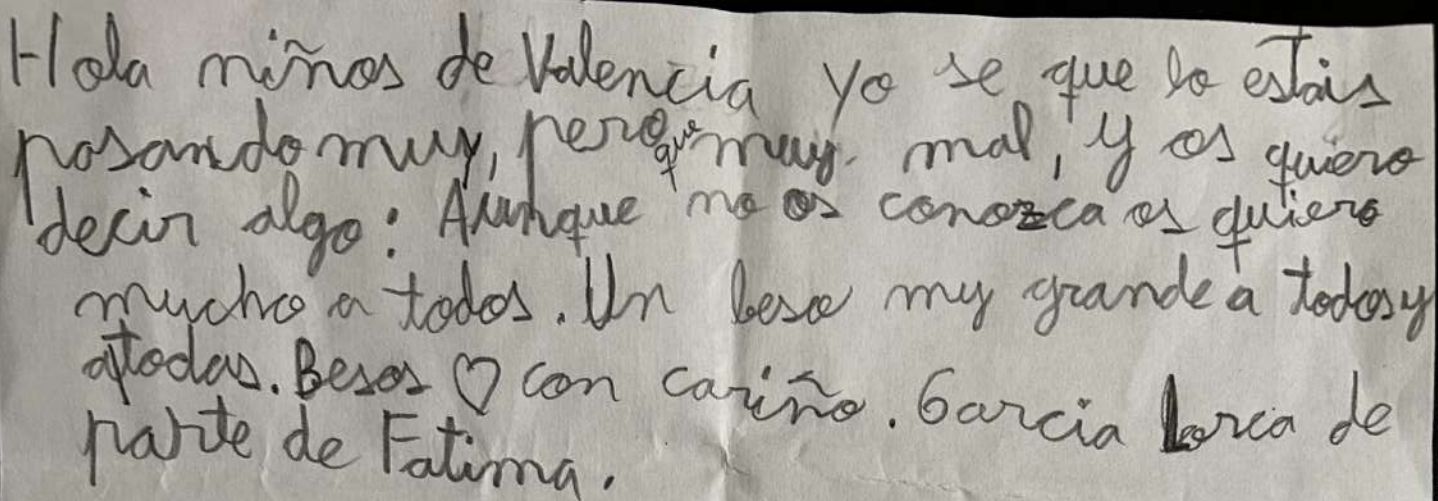 Hola niños de Valencia yo se que lo estáis
pasando muy, pero que muy mal, y os quiero
decir algo: Aunque no os conozca os quiero
mucho a todos. Un beso my grande a todos y
a todas. Besos ♡ con cariño. Garcia Lorca de
parte de Fatima.